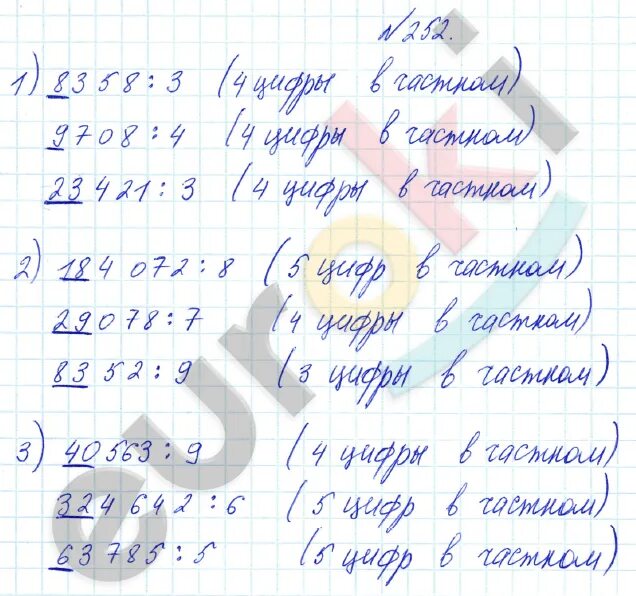 №252.
1) 8358 : 3 (4 цифры в частном)
9708 : 4 (4 цифры в частном)
23421 : 3 (4 цифры в частном)
2) 184 072 : 8 (5 цифр в частном)
29078 : 7 (4 цифры в частном)
8352 : 9 (3 цифры в частном)
3) 40563 : 9 (4 цифры в частном)
324642 : 6 (5 цифр в частном)
63785 : 5 (5 цифр в частном)
euroki